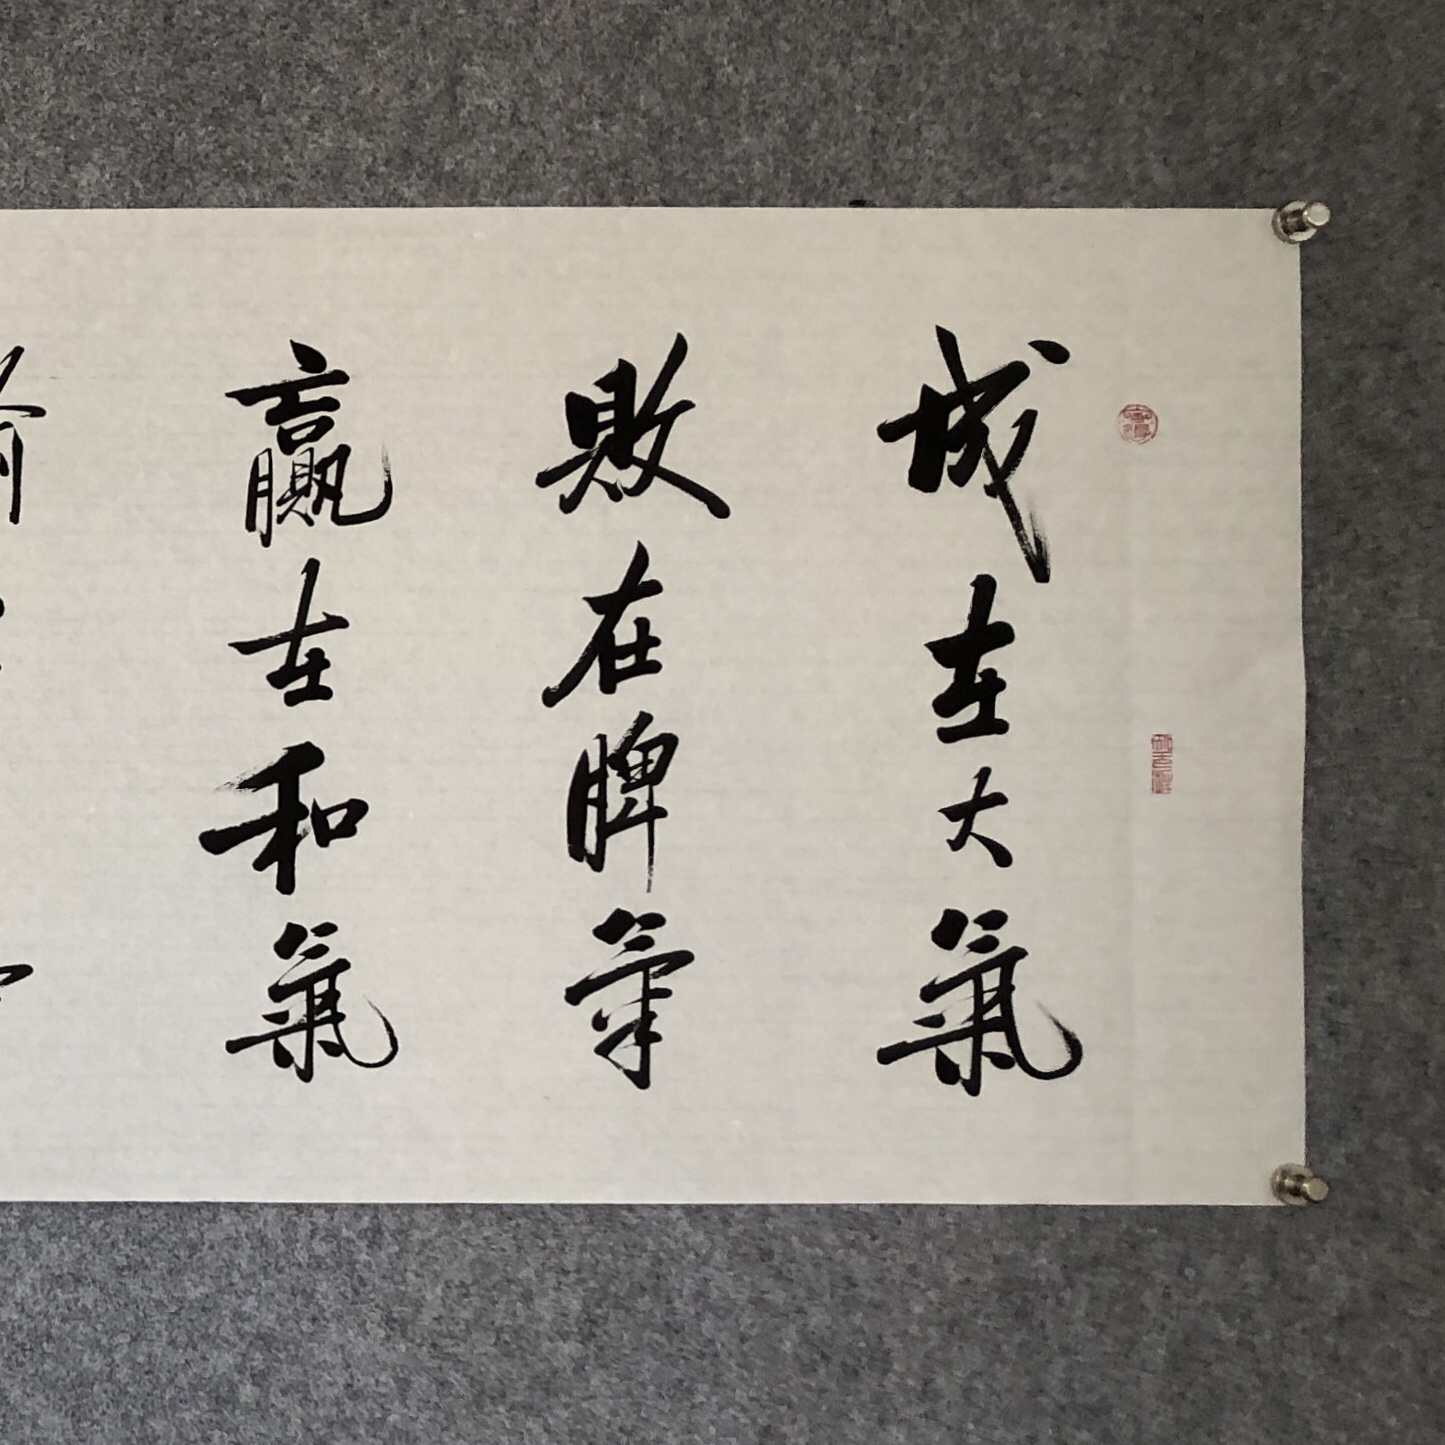 成在大氣
敗在脾氣
贏在和氣